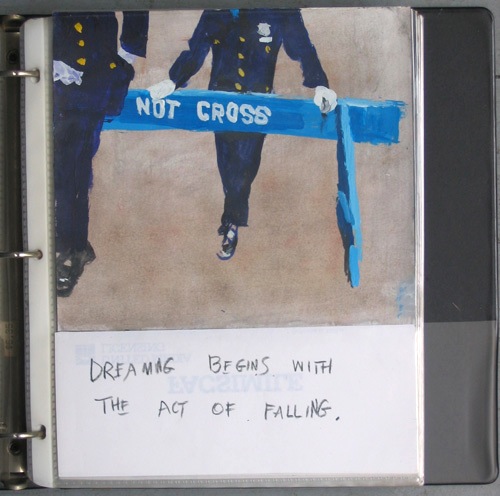 NOT CROSS
DREAMING BEGINS WITH
THE ACT OF FALLING.
FACSIMILE